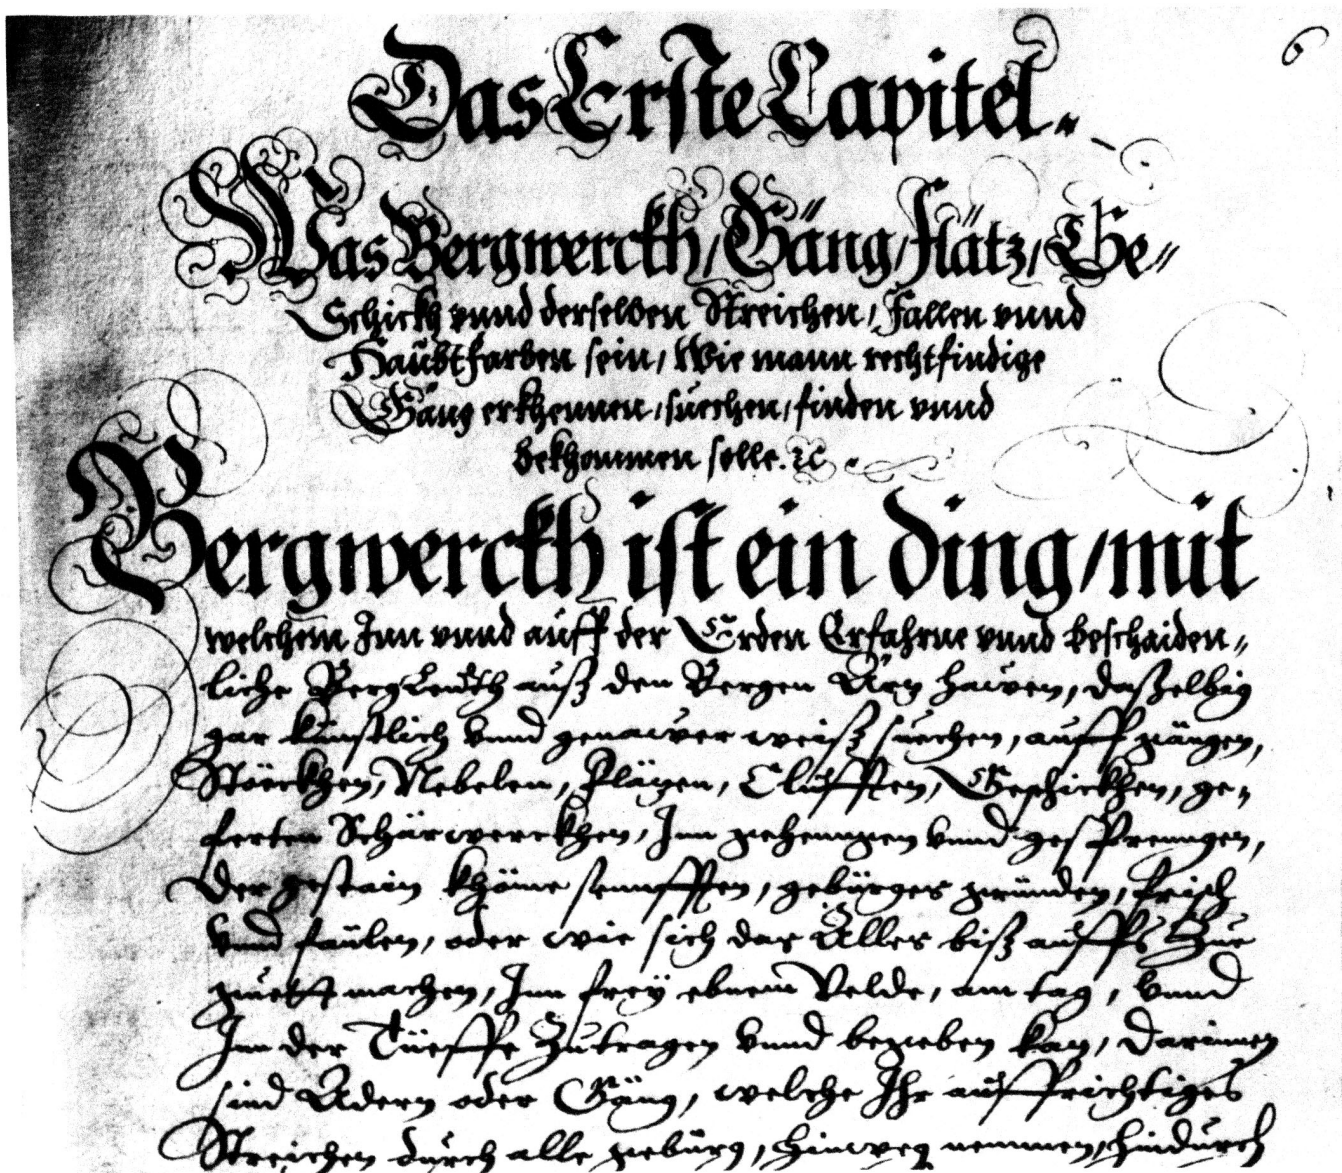 6
Das Erste Capitel.
Was Bergwerckh / Gäng / flätz / Ge„
Schickh vnnd derselben Streichen / Fallen vnnd
Haubtfarben sein / Wie mann rechtfindige
Gäng erkhennen / suechen / finden vnnd
bekhommen solle. ꝛc
Bergwerckh ist ein ding / mit
welchem Inn vnnd auff der Erden Erfahrne vnnd beschaiden„
liche BergLeüth auß den Bergen Ärtz hawen, daßelbig
gar künstlich vnnd genawer weiß suechen, auff gängen,
Stöeckhen, Nebelen, Flätzen, Clufften, Geschickhen, ge„
ferten Schärwerckhen, Inn gehenngen vnnd gesprenngen,
der gestain khöme sennfften, gebürges gründen, frisch
vnnd faülen, oder wie sich das Alles biß auffs Zue
machen, Inn frey ebnem Velde, am tag, vnnd
Inn der Tüeffe Zutragen vnnd begeben kan, darinnen
sind Adern oder Gäng, welche Ihr auffrichtiges
Streichen durch alle gebürg, hinweg nemmen, hindurch